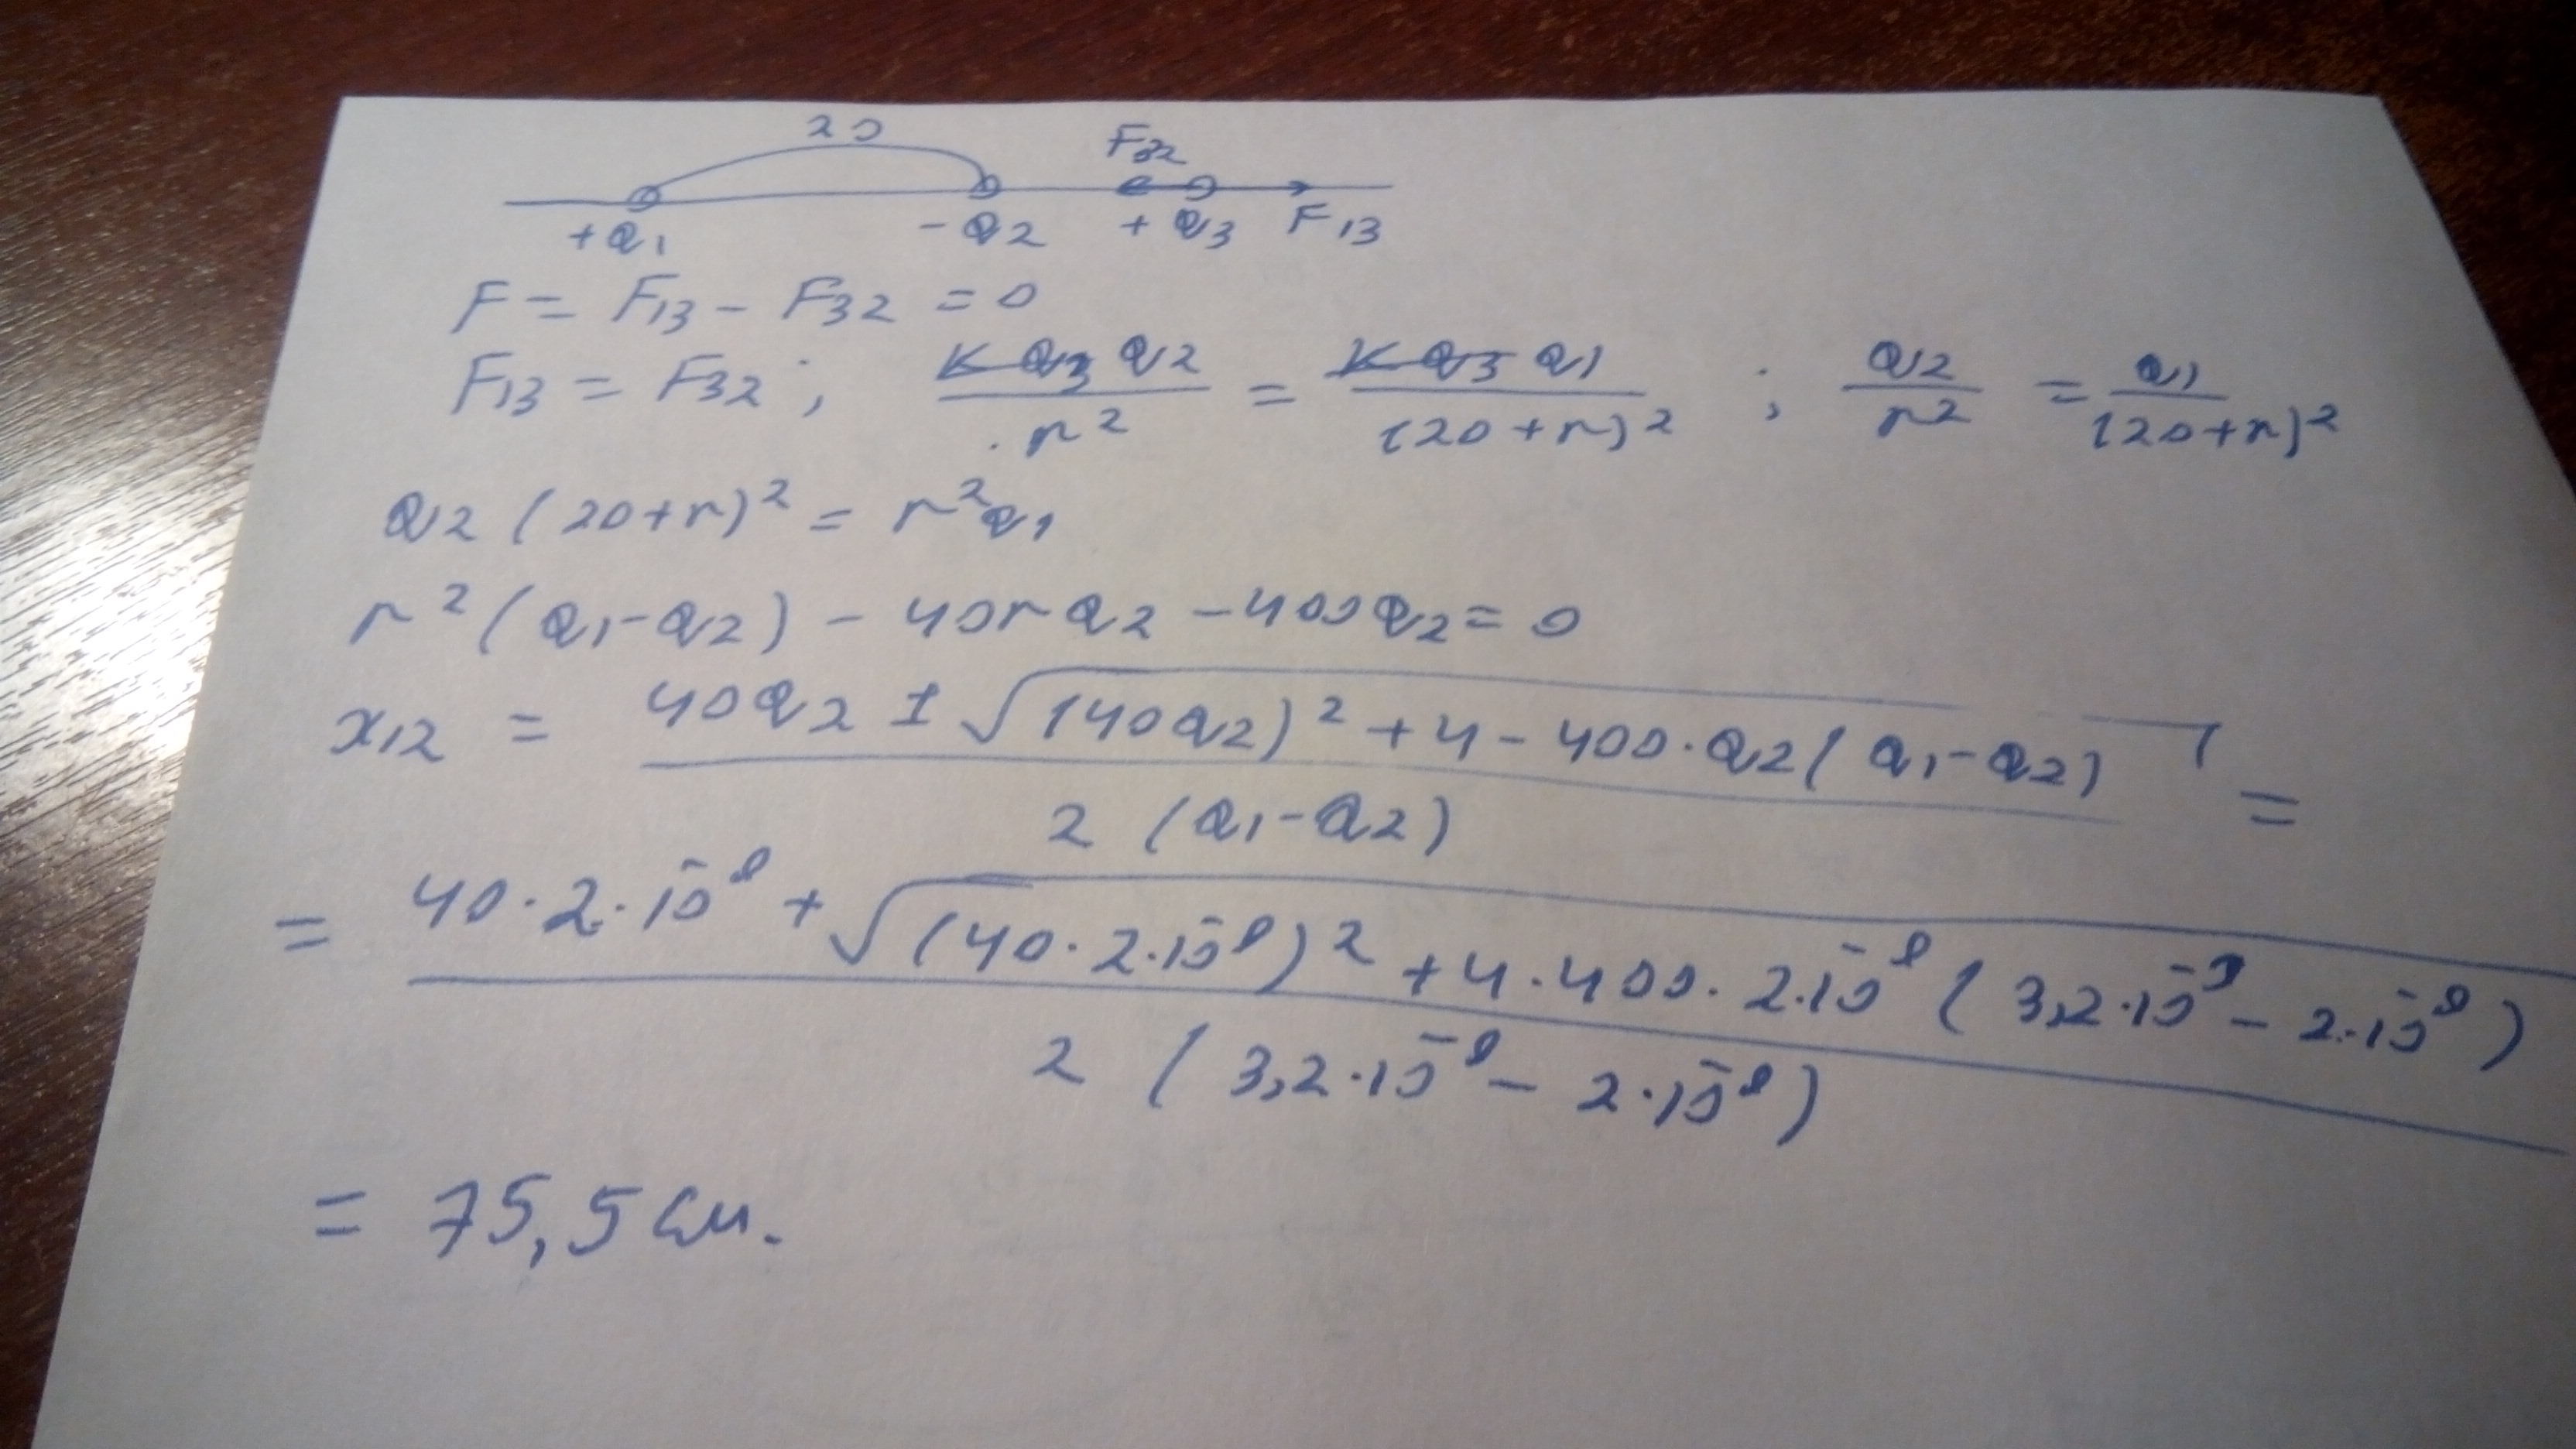 20
F32
+Q1 -Q2 +Q3 F13
F = F13 - F32 = 0
F13 = F32 ; K Q3 Q2 / r² = K Q3 Q1 / (20+r)² ; Q2 / r² = Q1 / (20+r)²
Q2 (20+r)² = r² Q1
r² (Q1-Q2) - 40r Q2 - 400Q2 = 0
x12 = 40Q2 ± √((40Q2)² + 4 - 400·Q2(Q1-Q2)) / 2 (Q1-Q2) =
= 40·2·10⁻⁸ + √((40·2·10⁻⁸)² + 4·400·2·10⁻⁸ (3,2·10⁻⁸ - 2·10⁻⁸)) / 2 (3,2·10⁻⁸ - 2·10⁻⁸)
= 75,5 см.